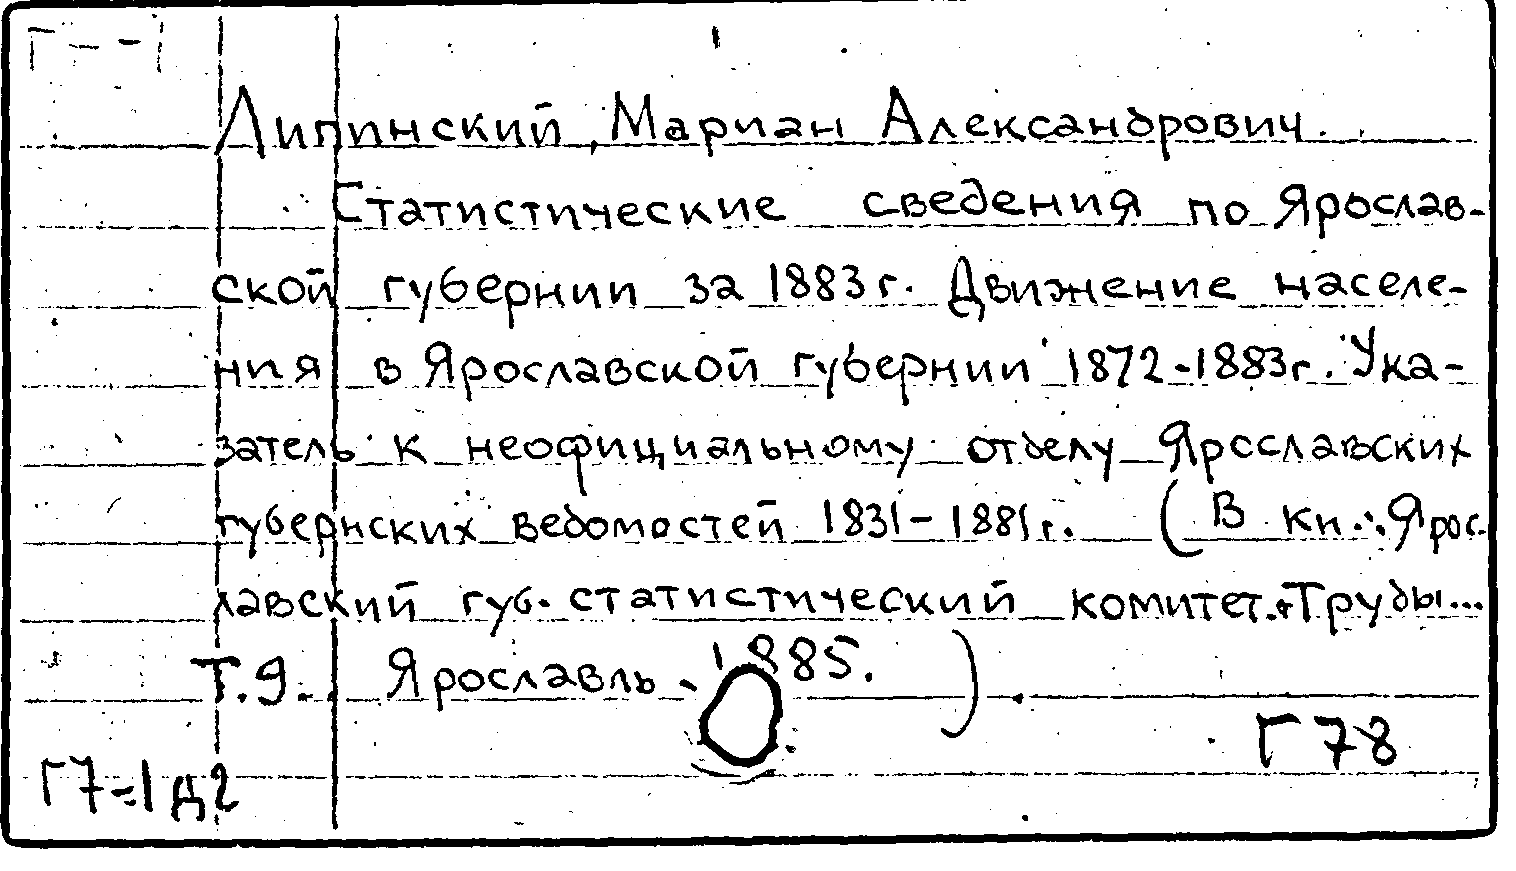 Липинский, Мариан Александрович.
Статистические сведения по Ярослав-
ской губернии за 1883 г. Движение населе-
ния в Ярославской губернии 1872-1883 г. Ука-
затель к неофициальному отделу Ярославских
губернских ведомостей 1831-1881 г. (В кн.: Ярос-
лавский губ. статистический комитет. Труды...
Т. 9. Ярославль. 1885.)
Г 78
Г7=1 д2